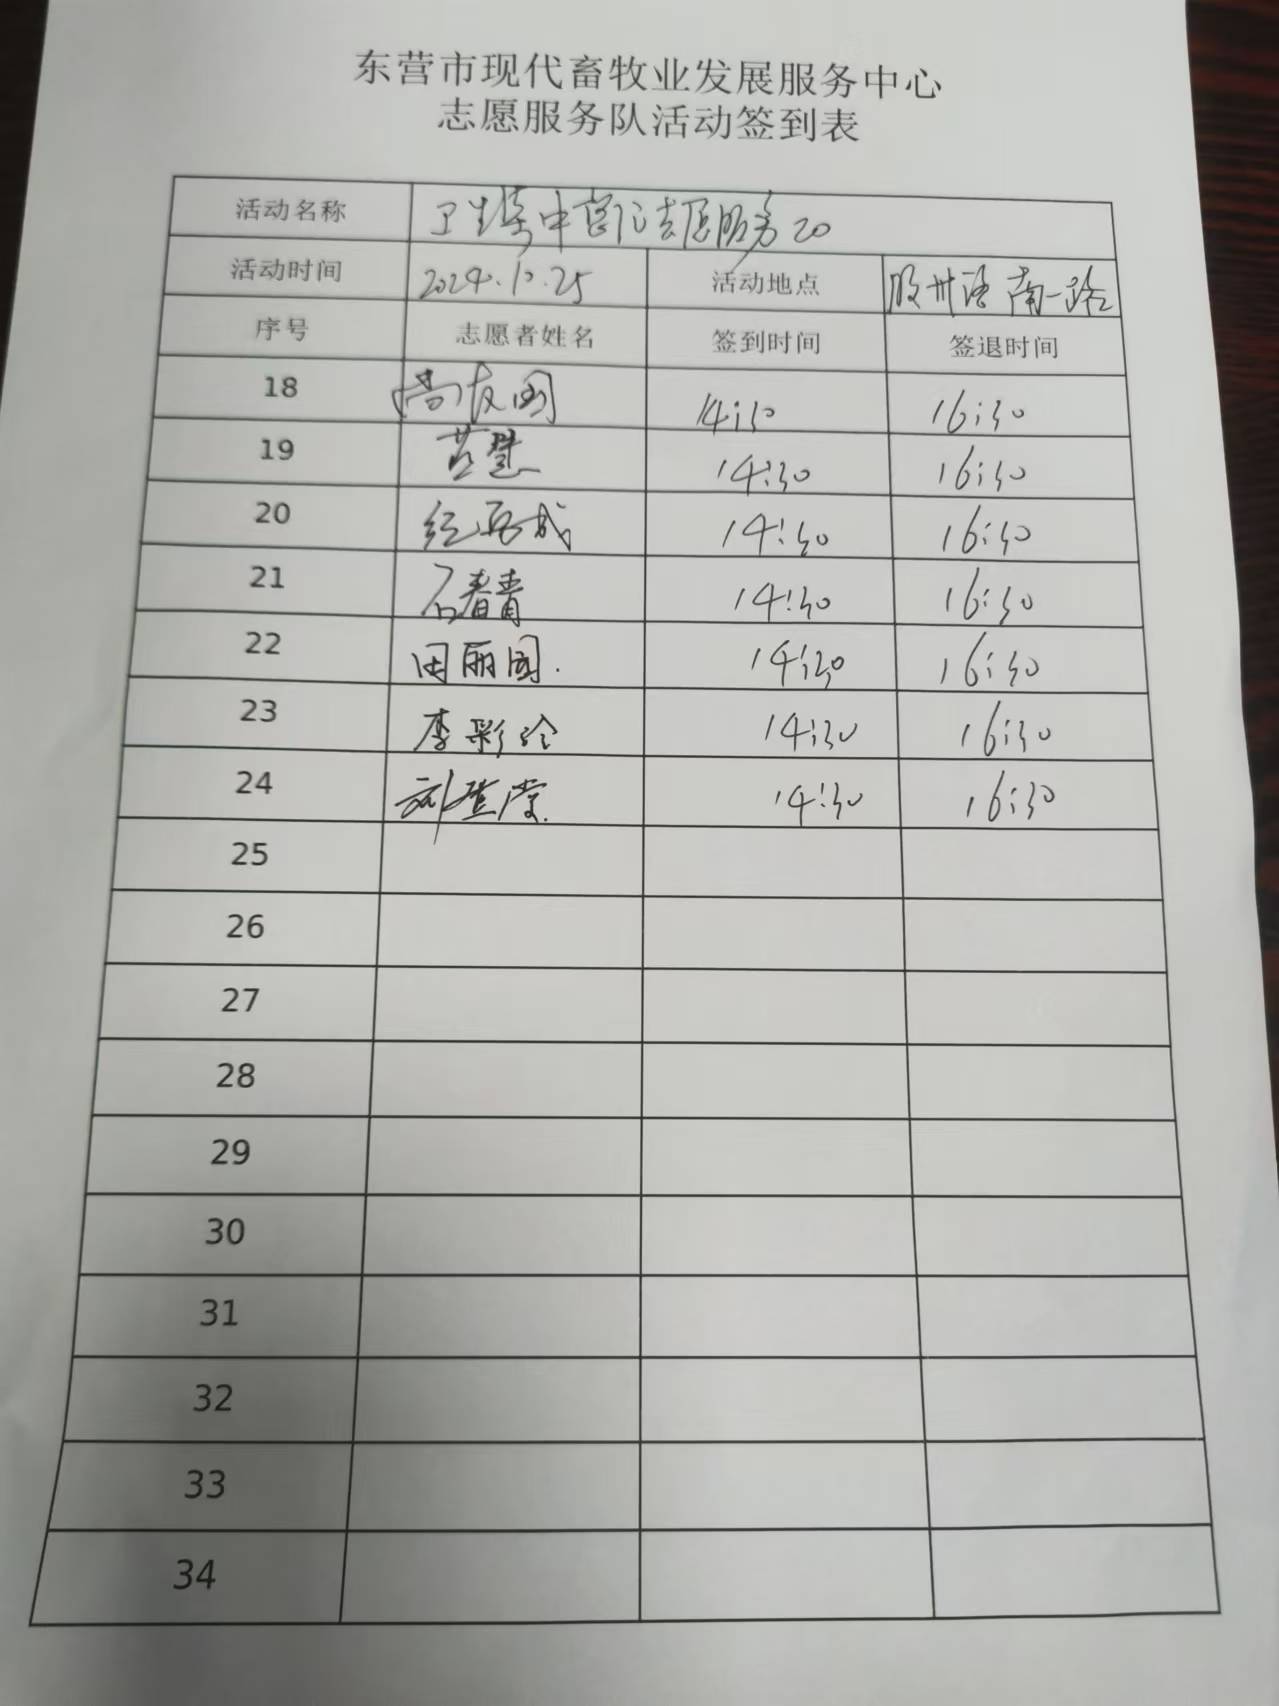 东营市现代畜牧业发展服务中心
志愿服务队活动签到表
活动名称 卫生集中宫仁志愿服务20
活动时间 2024.10.25 活动地点 胶州路 南一路
序号 志愿者姓名 签到时间 签退时间
18 尚友国 14:30 16:30
19 苏慧 14:30 16:30
20 纪成 14:30 16:30
21 石春青 14:30 16:30
22 田丽国. 14:30 16:30
23 李彩玲 14:30 16:30
24 刘登堂. 14:30 16:30
25
26
27
28
29
30
31
32
33
34